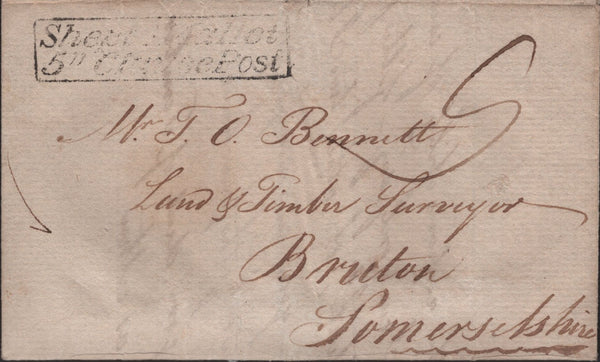 Mallet
5th Clause Post
5
Mr. T. O. Bennett
Land & Timber Surveyor
Bruton
Somersetshire